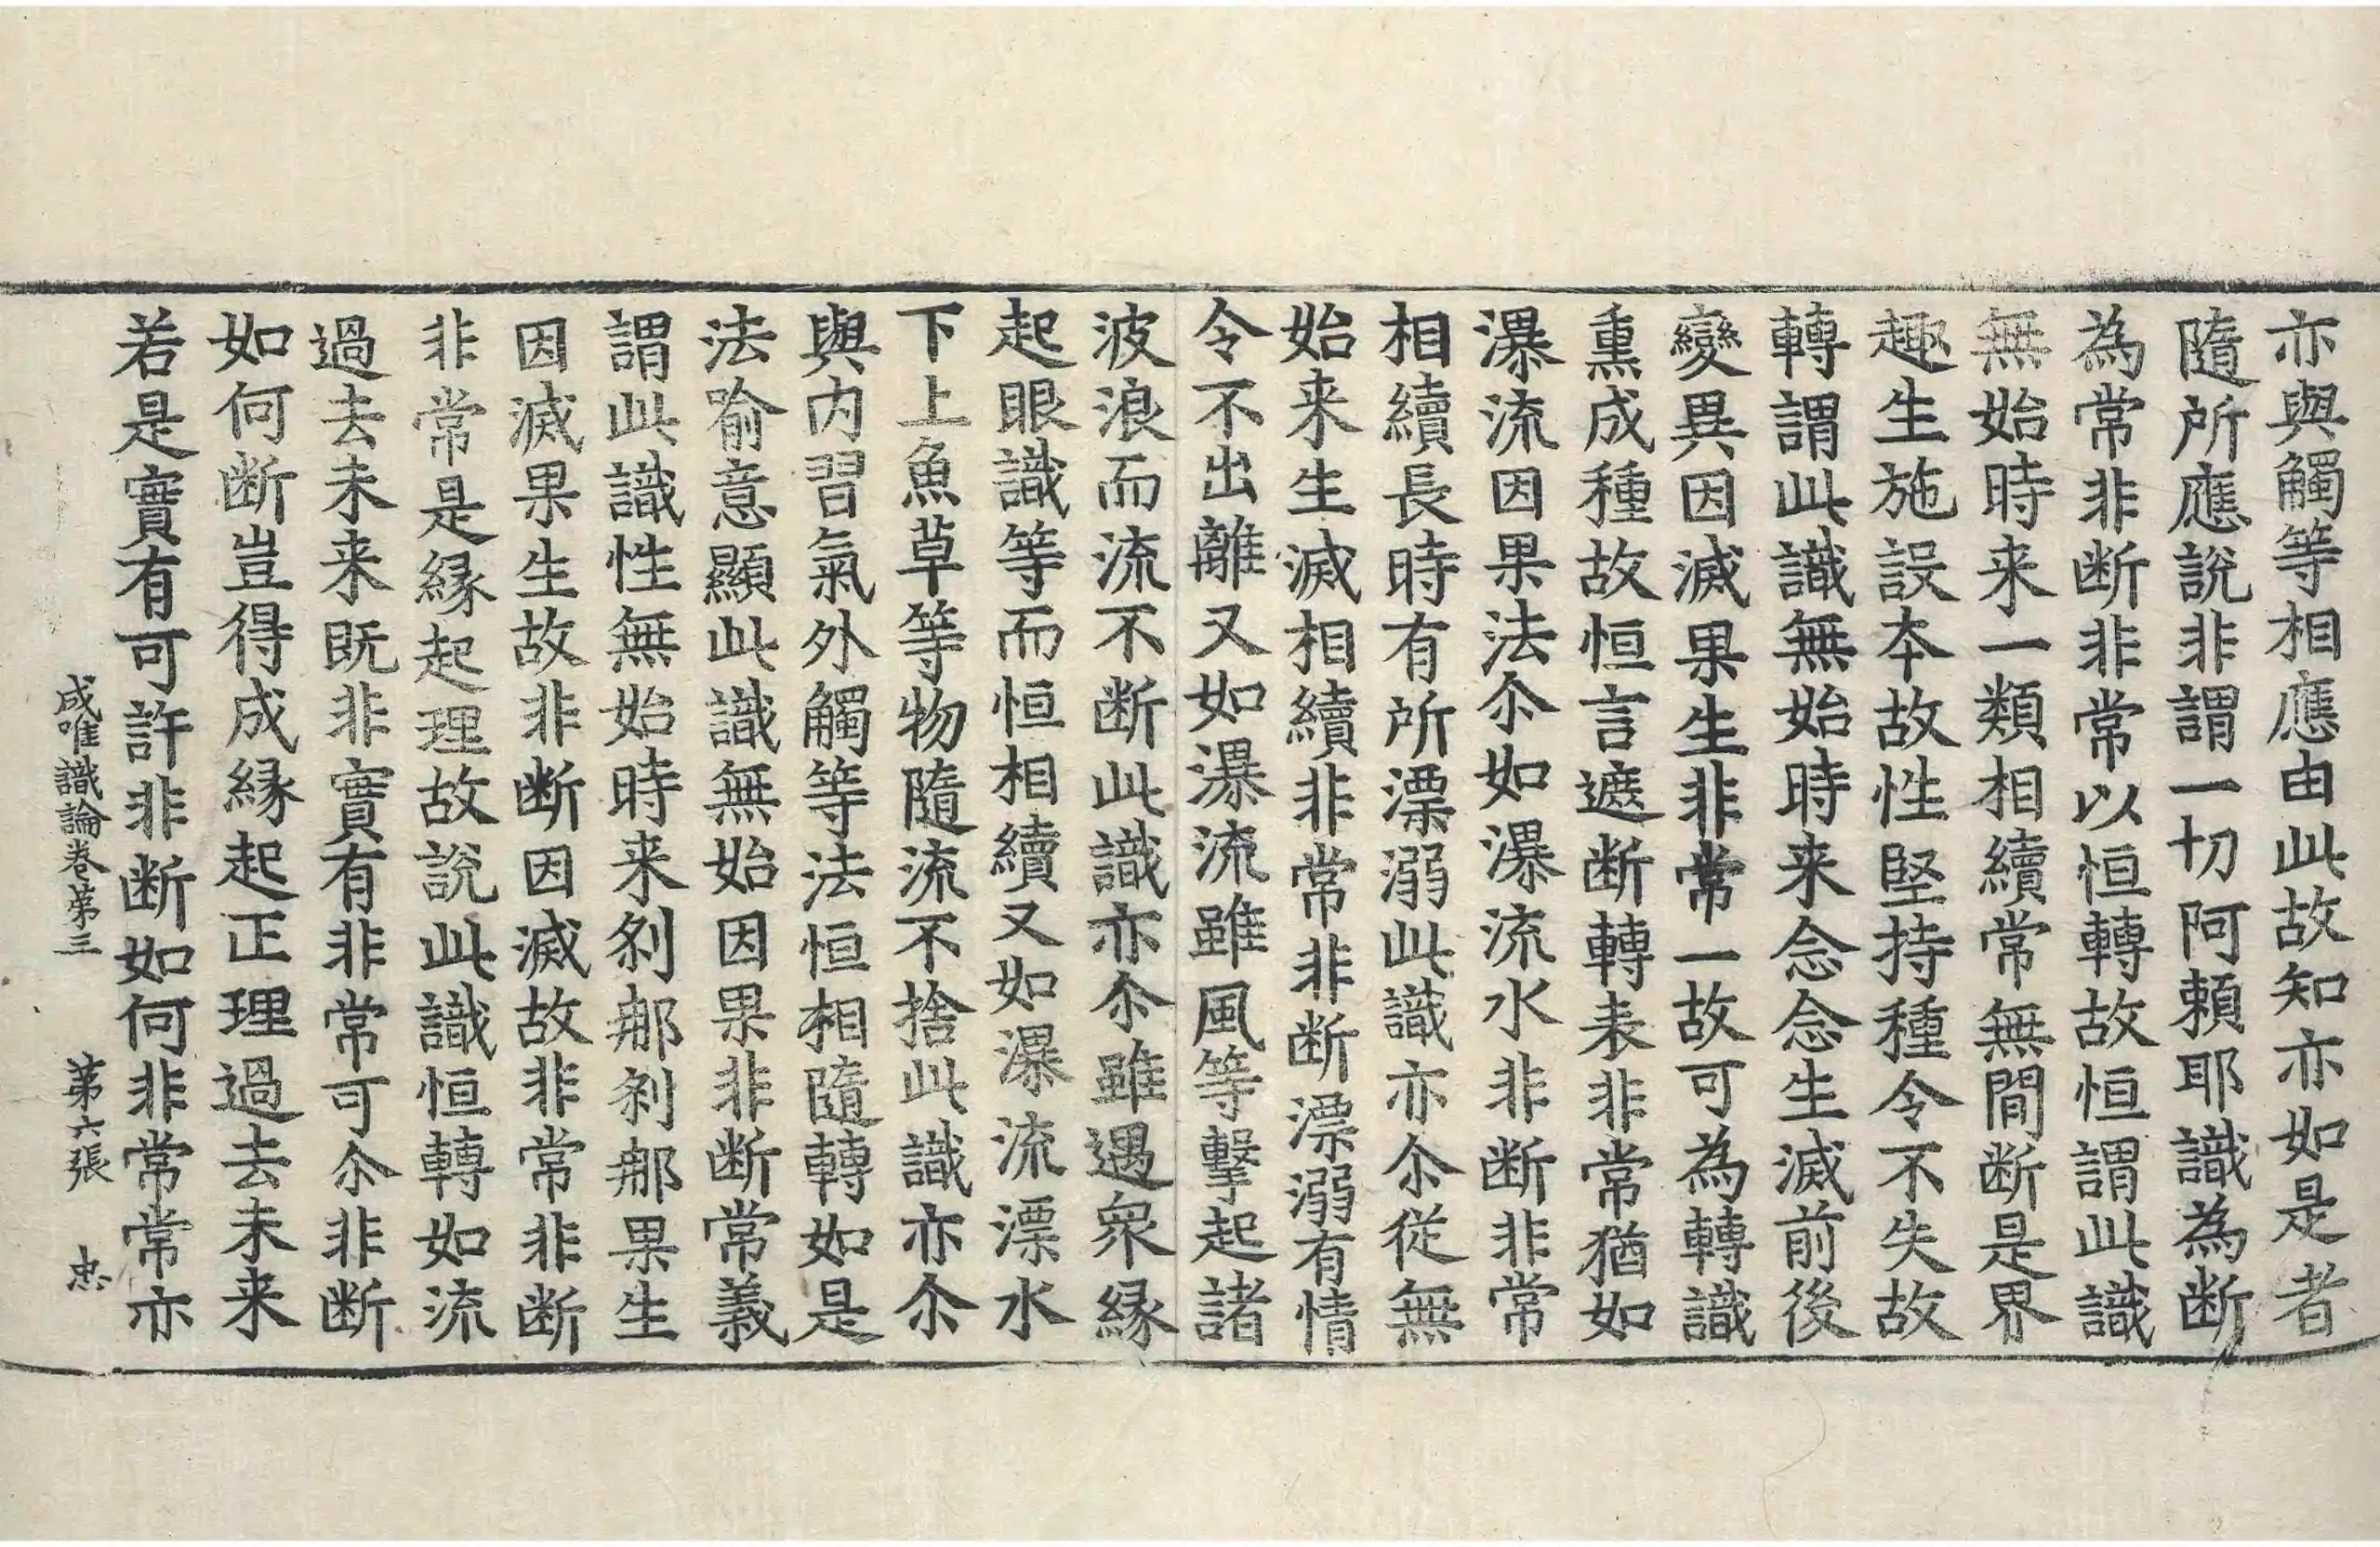 亦與觸等相應由此故知亦如是者
隨所應說非謂一切阿賴耶識為断
為常非断非常以恒轉故恒謂此識
無始時来一類相續常無間断是界
趣生施設本故性堅持種令不失故
轉謂此識無始時来念念生滅前後
變異因滅果生非常一故可為轉識
熏成種故恒言遮断轉表非常猶如
瀑流因果法尒如瀑流水非断非常
相續長時有所漂溺此識亦尒從無
始来生滅相續非常非断漂溺有情
令不出離又如瀑流雖風等擊起諸
波浪而流不断此識亦尒雖遇衆縁
起眼識等而恒相續又如瀑流漂水
下上魚草等物隨流不捨此識亦尒
與内習氣外觸等法恒相隨轉如是
法喻意顯此識無始因果非断常義
謂此識性無始時来剎那剎那果生
因滅果生故非断因滅故非常非断
非常是縁起理故說此識恒轉如流
過去未来既非實有非常可尒非断
如何断豈得成縁起正理過去未来
若是實有可許非断如何非常常亦
成唯識論卷第三 第六張 忠